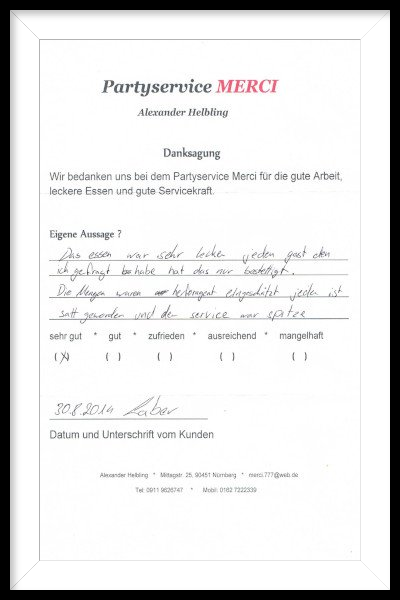 Partyservice MERCI
Alexander Helbling
Danksagung
Wir bedanken uns bei dem Partyservice Merci für die gute Arbeit,
leckere Essen und gute Servicekraft.
Eigene Aussage ?
Das essen war sehr lecker jeden gast den
ich gefragt habe hat das nur bestätigt.
Die Mengen waren hervoragent eingeschätzt jeder ist
satt geworden und der service war spitze
sehr gut * gut * zufrieden * ausreichend * mangelhaft
(X) ( ) ( ) ( ) ( )
30.8.2014
Datum und Unterschrift vom Kunden
Alexander Helbling * Mittagstr. 25, 90451 Nürnberg * merci.777@web.de
Tel: 0911 9626747 * Mobil: 0162 7222339